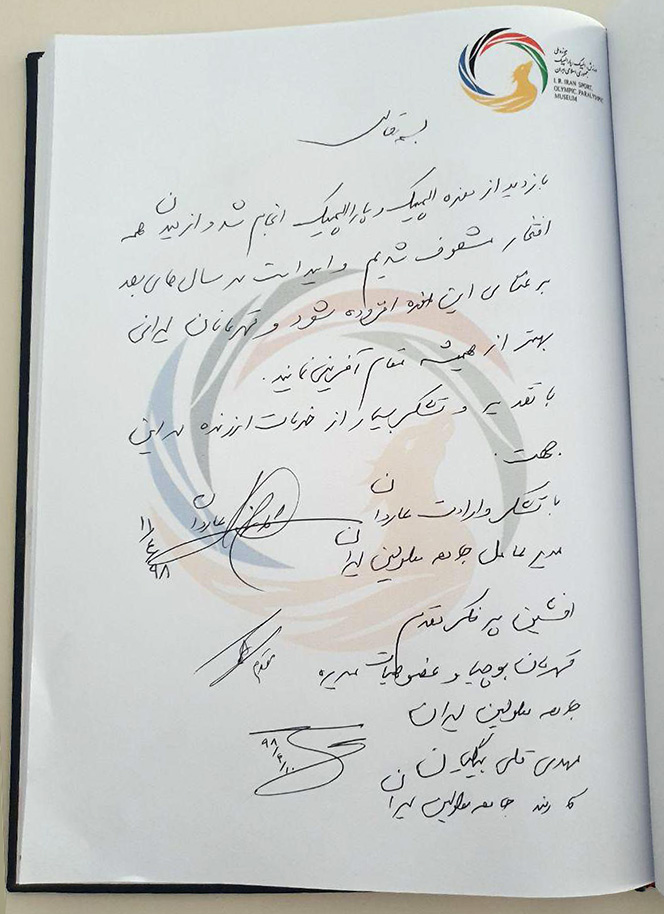 موزه ملی
ورزش، المپیک و پارالمپیک
جمهوری اسلامی ایران
I. R. IRAN SPORT,
OLYMPIC, PARALYMPIC
MUSEUM
بسمه تعالی
بازدید از موزه المپیک و پارالمپیک انجام شد و از دیدن همه
افتخار مشعوف شدیم و امید است در سال های بعد
بر غنای این موزه افزوده شود و قهرمانان ایرانی
بهتر از همیشه مقام آفرینی نمایند.
با تقدیر و تشکر بسیار از خدمات ارزنده در این
جهت.
با تشکر و ارادت
مدیر عامل جامعه معلولین ایران
۱۱
۹۸
افشین
مقدم
قهرمان بوچیا و عضو هیات مدیره
جامعه معلولین ایران
مهدی قلی
۹۸/۴/۱۰
کارمند جامعه معلولین ایران